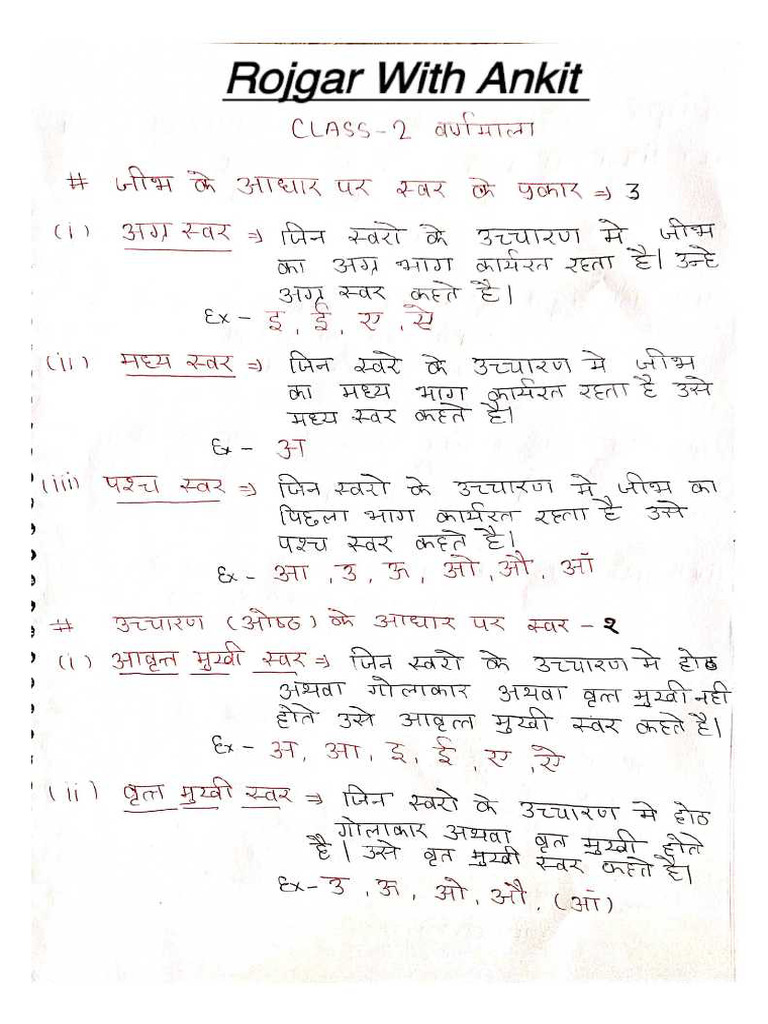 Rojgar With Ankit
CLASS-2 वर्णमाला
# जीभ के आधार पर स्वर के प्रकार ⇒ 3
(i) अग्र स्वर ⇒ जिन स्वरो के उच्चारण मे जीभ
का अग्र भाग कार्यरत रहता है। उन्हे
अग्र स्वर कहते है।
Ex - इ, ई, ए, ऐ
(ii) मध्य स्वर ⇒ जिन स्वरे के उच्चारण मे जीभ
का मध्य भाग कार्यरत रहता है उसे
मध्य स्वर कहते है।
Ex - अ
(iii) पश्च स्वर ⇒ जिन स्वरो के उच्चारण मे जीभ का
पिछला भाग कार्यरत रहता है उसे
पश्च स्वर कहते है।
Ex - आ, उ, ऊ, ओ, औ, ऑ
# उच्चारण (ओष्ठ) के आधार पर स्वर - २
(i) आवृत्त मुखी स्वर ⇒ जिन स्वरो के उच्चारण मे होठ
अथवा गोलाकार अथवा वृत्त मुखी नही
होते उसे आवृत्त मुखी स्वर कहते है।
Ex - अ, आ, इ, ई, ए, ऐ
(ii) वृत्त मुखी स्वर ⇒ जिन स्वरो के उच्चारण मे होठ
गोलाकार अथवा वृत मुखी होते
है। उसे वृत मुखी स्वर कहते है।
Ex - उ, ऊ, ओ, औ, (ऑ)